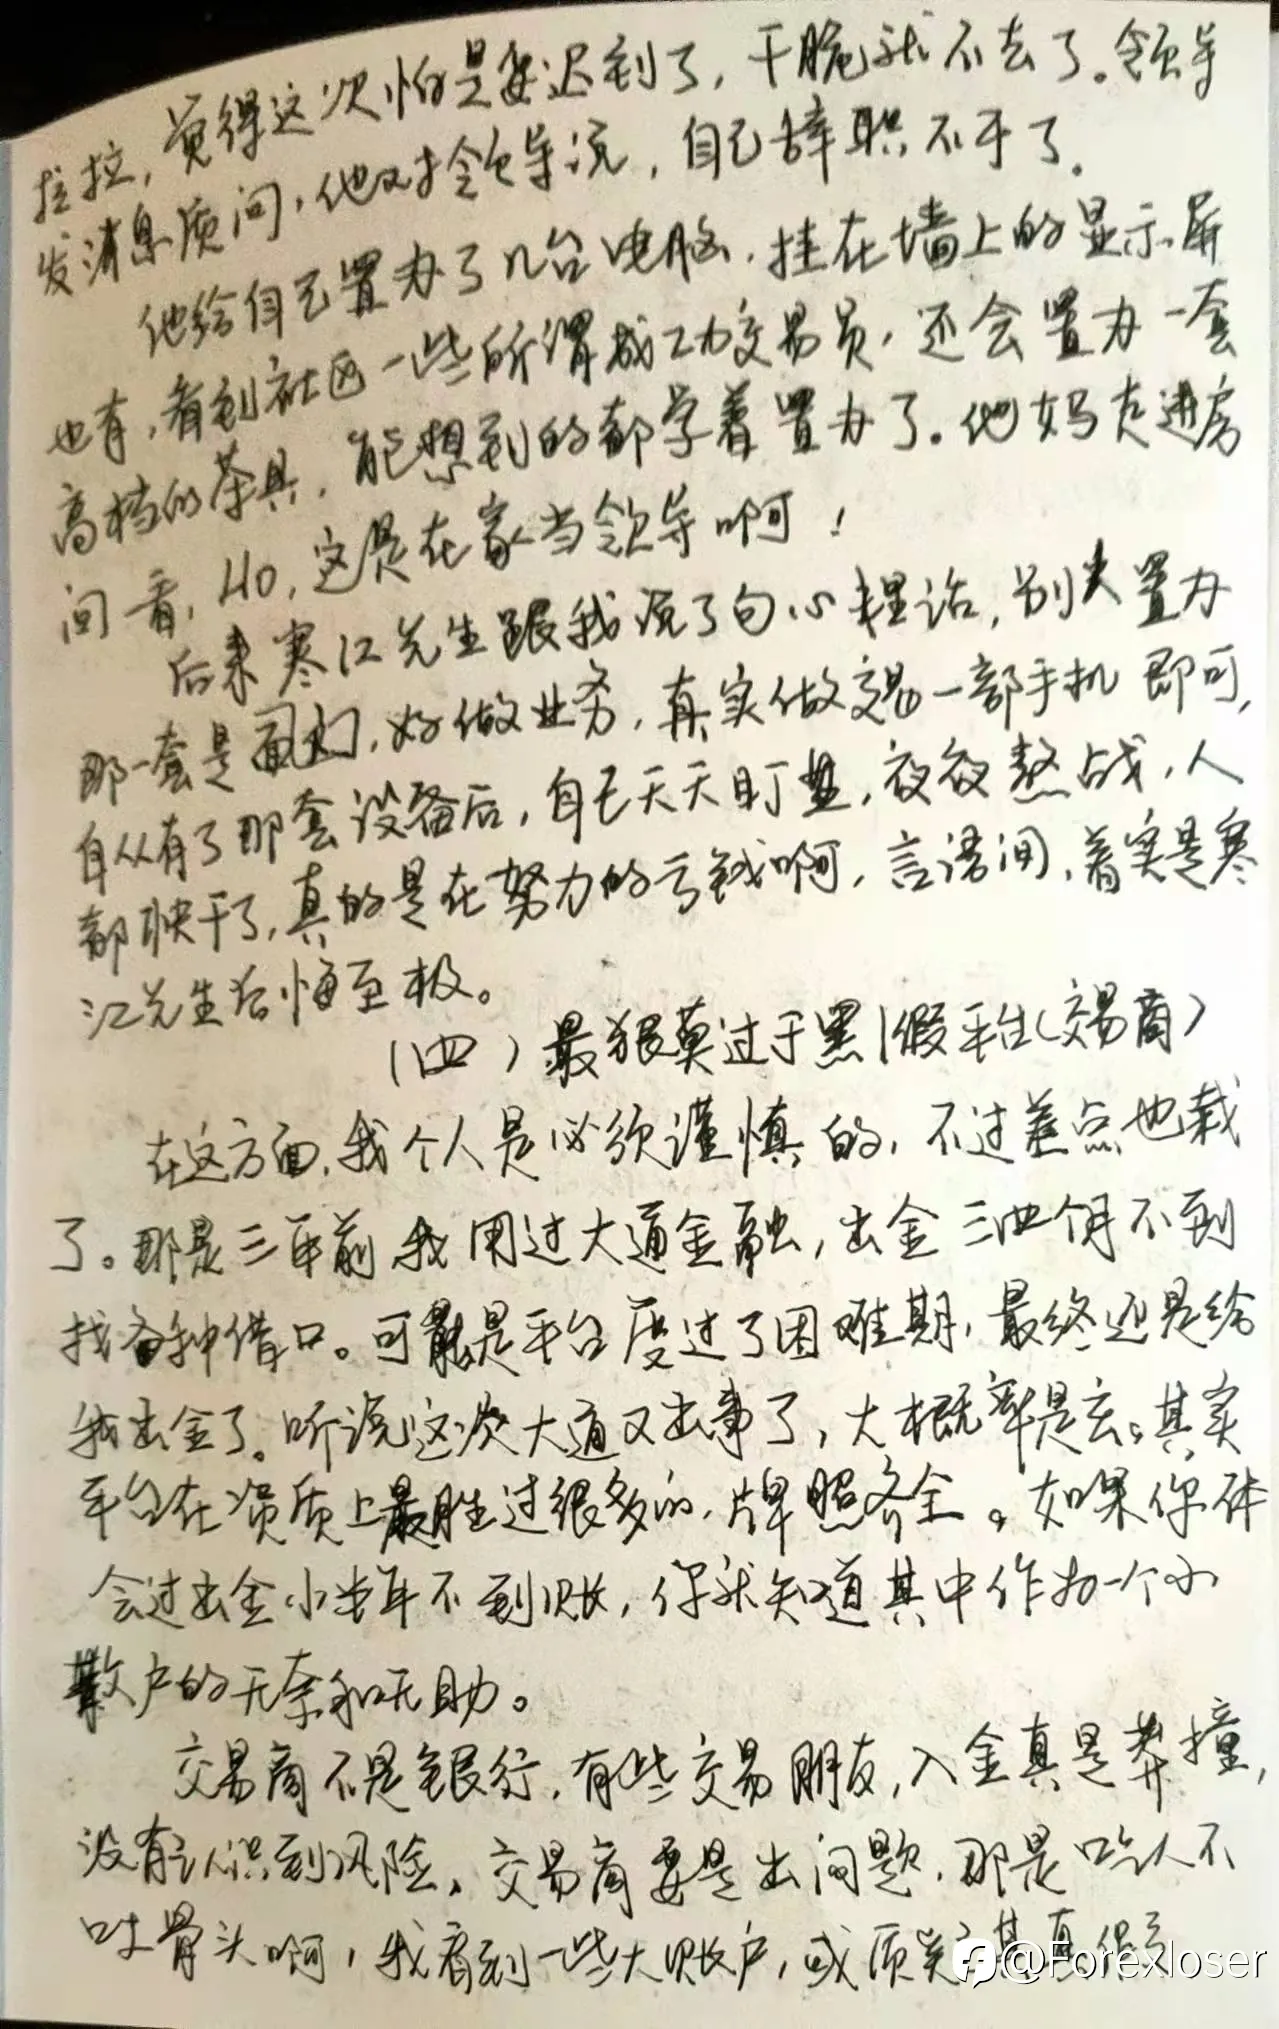 拉拉，觉得这次怕是要迟到了，干脆就不去了。领导
发消息质问，他对领导说，自己辞职不干了。
他给自己置办了几台电脑，挂在墙上的显示屏
也有，看到社区一些所谓成功交易员，还会置办一套
高档的茶具，能想到的都学着置办了。他妈走进房
间看，用，这是在家当领导啊！
后来寒江先生跟我说了句心里话，别去置办
那一套是面门，好做业务，真实做交易一部手机即可，
自从有了那套设备后，自己天天盯盘，夜夜熬战，人
都快干了，真的是在努力的亏钱啊，言语间，着实是寒
江先生后悔至极。
（四）最狠莫过于黑/假平台（交易商）
在这方面，我个人是必须谨慎的，不过差点也栽
了。那是三年前我用过大通金融，出金三四个月不到
找各种借口。可能是平台度过了困难期，最终还是给
我出金了。听说这次大通又出事了，大概率是玄。其实
平台在资质上是胜过很多的，牌照齐全。如果你体
会过出金小半年不到账，你就知道其中作为一个小
散户的无奈和无助。
交易商不是银行，有些交易朋友，入金真是莽撞，
没有认识到风险。交易商要是出问题，那是吃人不
吐骨头啊，我看到一些大账户，或质
@Forexloser